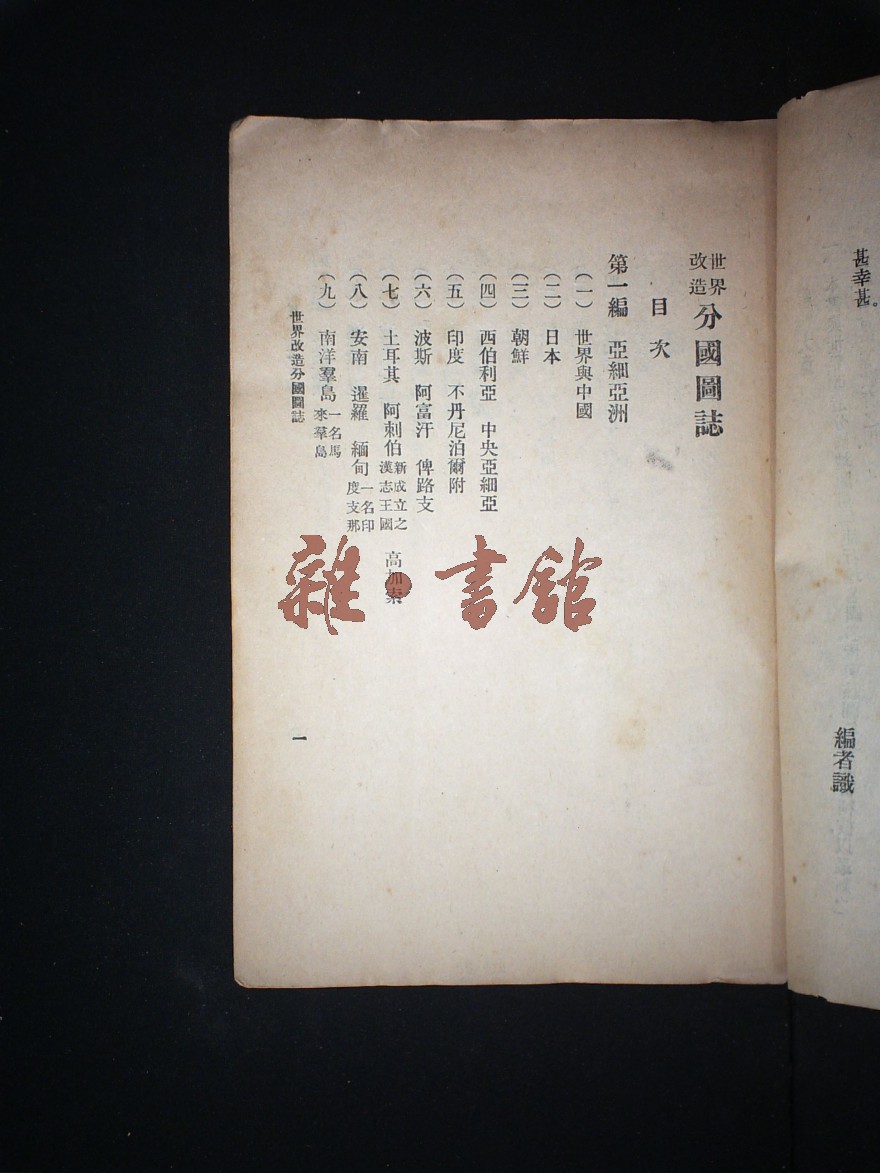 甚幸甚。
編者識
世界改造分國圖誌
目次
第一編 亞細亞洲
（一） 世界與中國
（二） 日本
（三） 朝鮮
（四） 西伯利亞 中央亞細亞
（五） 印度 不丹尼泊爾附
（六） 波斯 阿富汗 俾路支
（七） 土耳其 阿剌伯新成立之漢志王國 高加索
（八） 安南 暹羅 緬甸一名印度支那
（九） 南洋羣島一名馬來羣島
世界改造分國圖誌
一
雜·書館